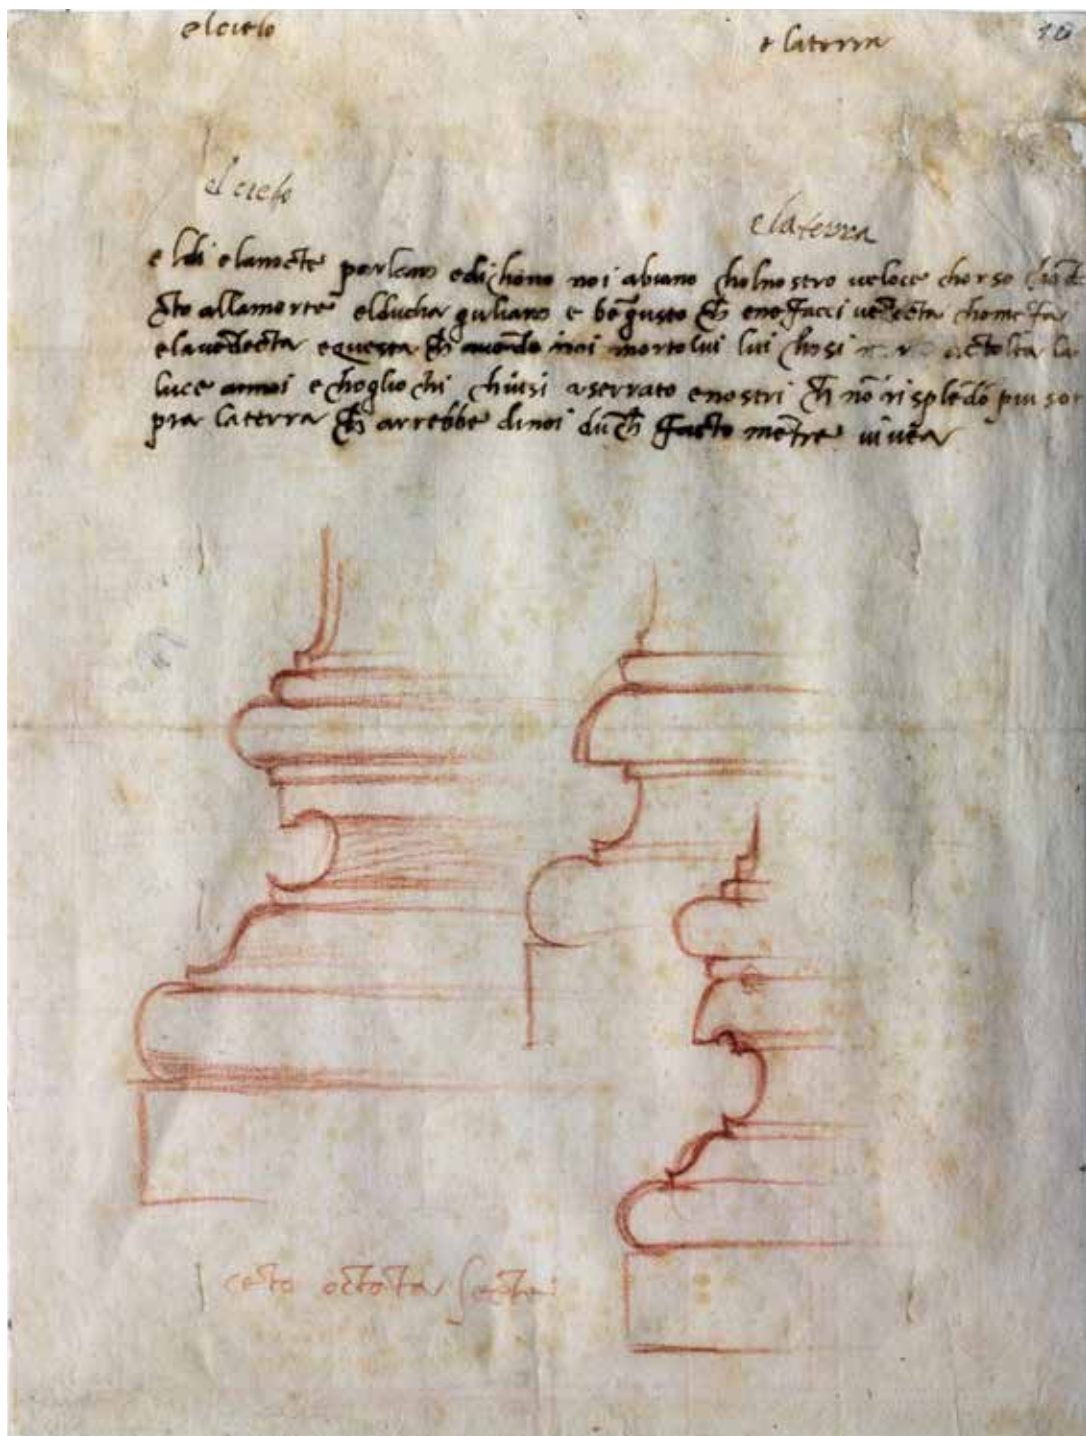 el cielo
e la terra
10
el cielo
e la terra
el di e la nocte parlano e dichono noi abiano chol nostro veloce chorso
cto alla morte el ducha guliano e be gusto ch e ne facci vedecta chome fa
e la vedecta e questa ch avendo noi morto lui lui chosi a tolta la
luce a nnoi e chogli ochi chiusi a serrato e nostri ch no risplendo piu sor
pra la terra ch arrebbe di noi duch facto metre vivea
ceto octota secte